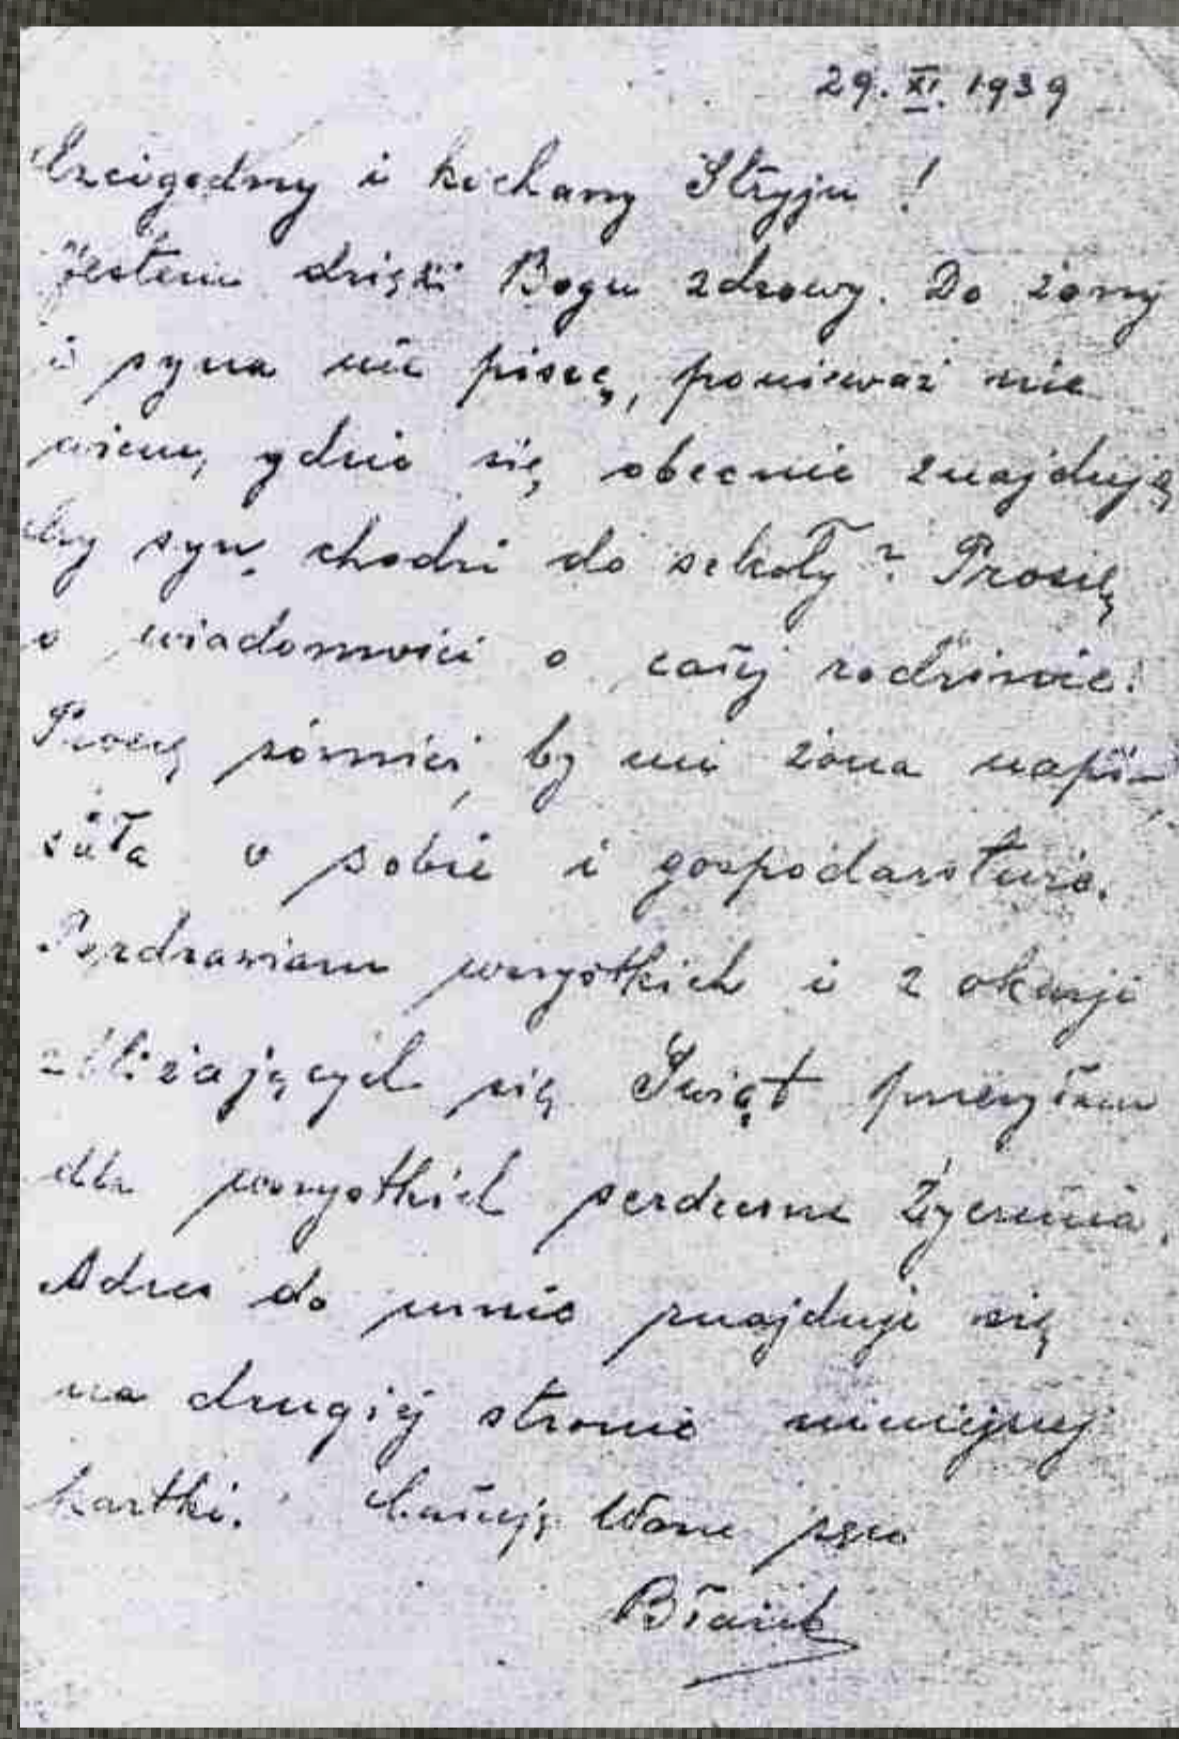 29. XI. 1939
Czcigodny i kochany Stryju!
Jestem dzięki Bogu zdrowy. Do żony
i syna nie piszę, ponieważ nie
wiem, gdzie się obecnie znajdują
Czy syn chodzi do szkoły? Proszę
o wiadomości o całej rodzinie.
Proszę również, by mi żona napi-
sała o sobie i gospodarstwie.
Pozdrawiam wszystkich i z okazji
zbliżających się Świąt przesyłam
dla wszystkich serdeczne życzenia.
Adres do mnie znajduje się
na drugiej stronie niniejszej
kartki. Całuję Wasze
Błażik